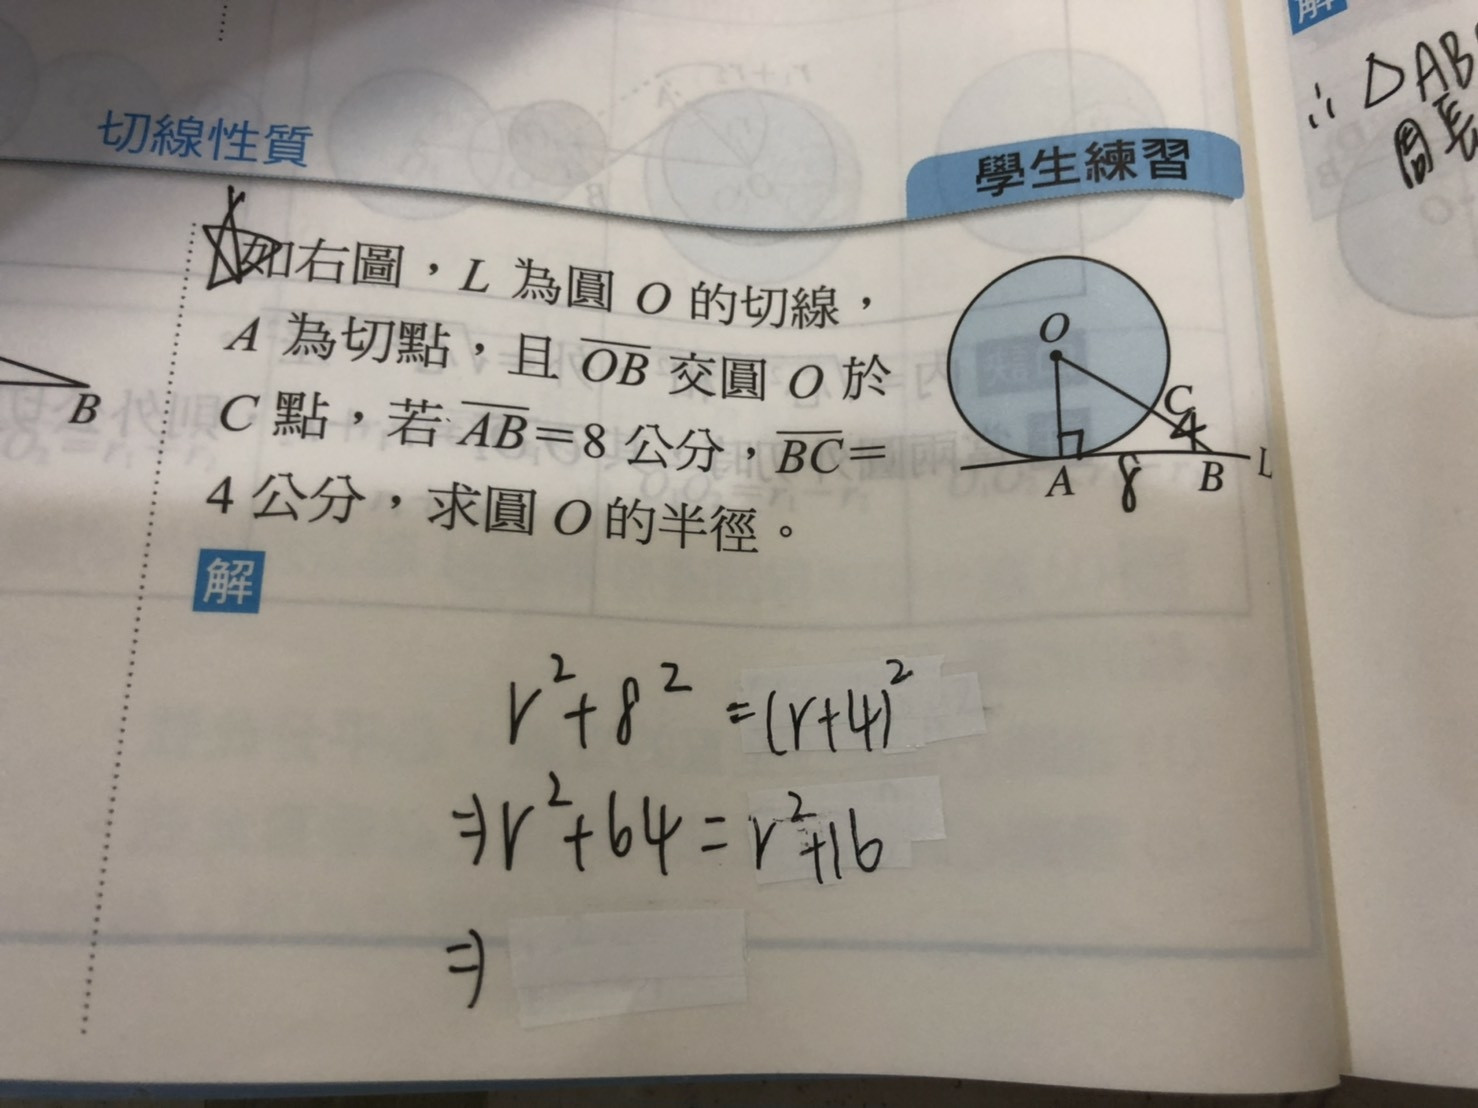 切線性質
學生練習
如右圖，L 為圓 O 的切線，
A 為切點，且 OB 交圓 O 於
C 點，若 AB=8 公分，BC=
4 公分，求圓 O 的半徑。
O
C
4
A
8
B
L
解
r²+8²=(r+4)²
⇒r²+64=r²+16
⇒
B
解
∴△AB
周長